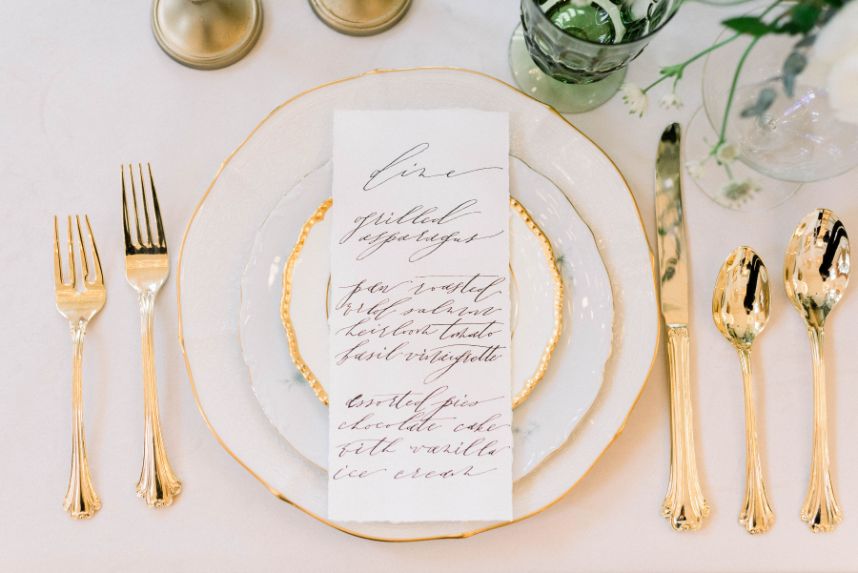 dine
grilled
asparagus
pan roasted
wild salmon
heirloom tomato
basil vinaigrette
assorted pies
chocolate cake
with vanilla
ice cream